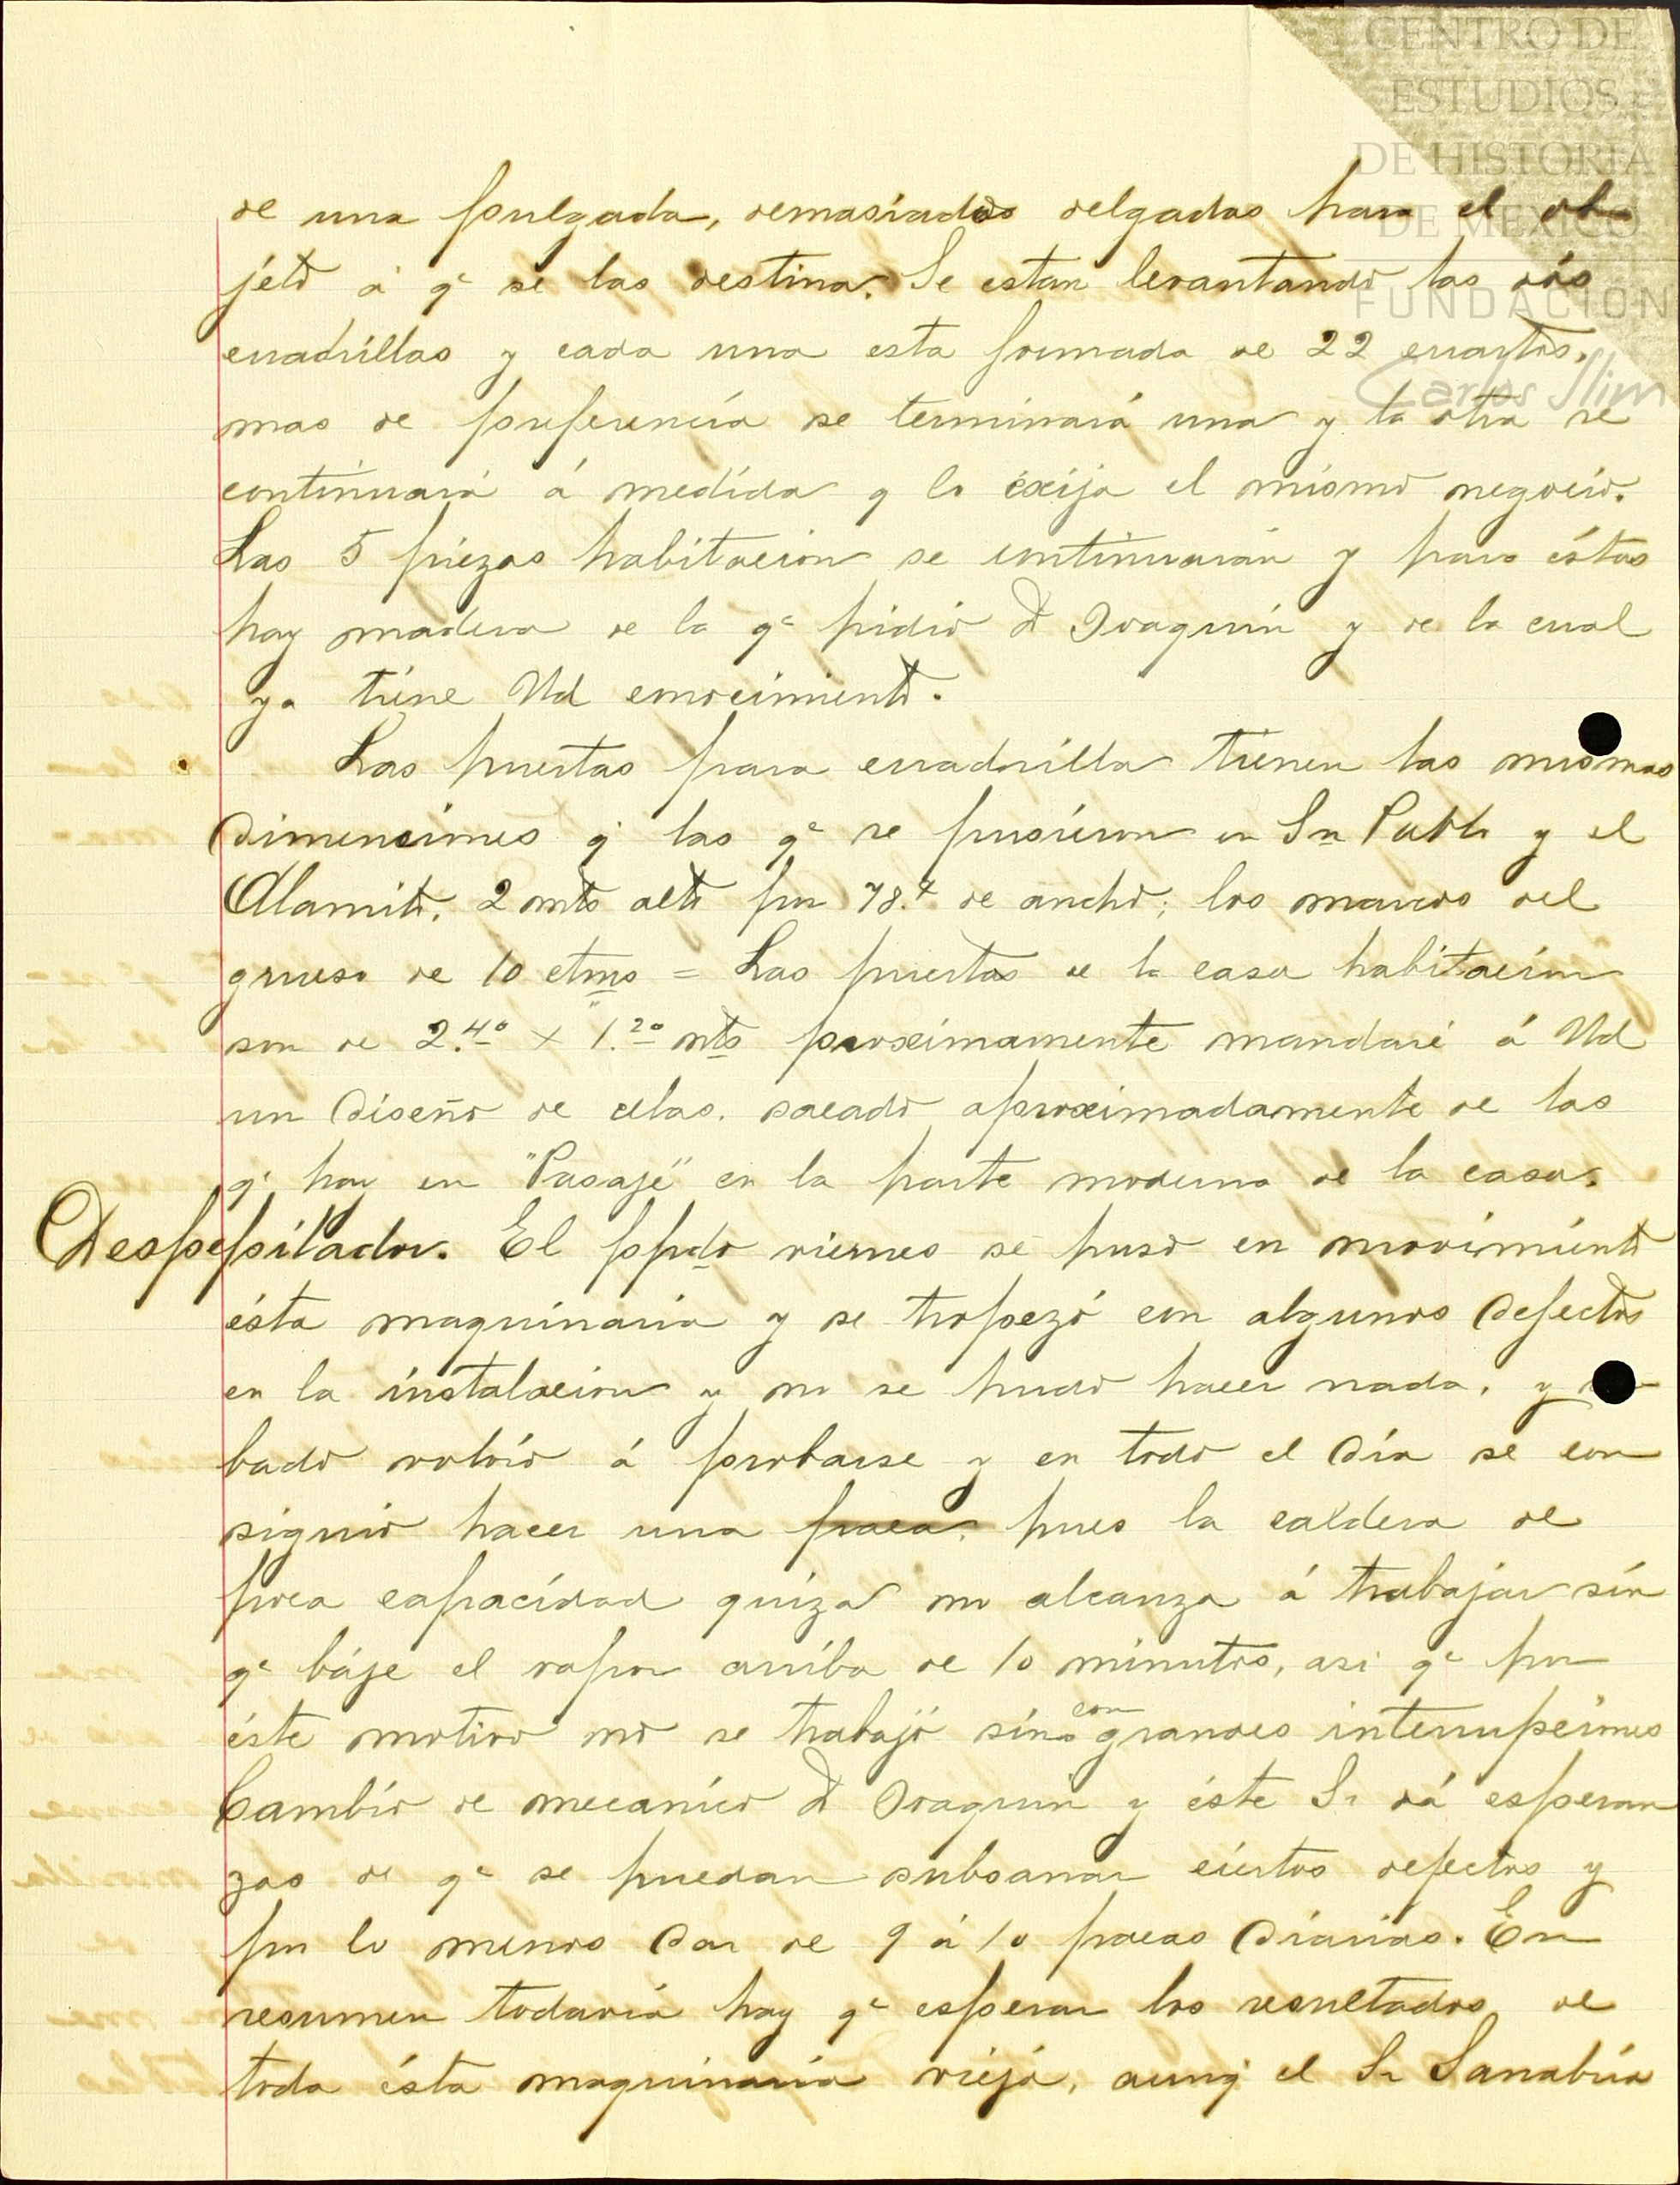 CENTRO DE
ESTUDIOS
DE HISTORIA
DE MEXICO
FUNDACION
Carlos Slim
de una pulgada, demasiados delgadas para el ob
jeto á qe se las destina. Se estan levantando las dós
cuadrillas y cada una esta formada de 22 cuartos.
mas de preferencia se terminará una y la otra se
continuará á medida q lo éxija el mismo negocio.
Las 5 piezas habitacion se continuarán y para éstas
hay madera de la qe pidió D Joaquin y de la cual
ya tiene Ud conocimiento.
Las puertas para cuadrilla tienen las mismas
Dimenciones q. las qe se pusieron en Sn Pablo y el
Alamito. 2 mts alto por 78. de ancho; los marcos del
grueso de 10 ctms = Las puertas de la casa habitacion
son de 2.40 x 1.20 mts proximamente mandaré á Ud
un Diseño de ellas. sacado aproximadamente de las
q. hay en "Pasaje" en la parte moderna de la casa.
Despepitador. El ppdo viernes se puso en movimiento
ésta maquinaria y se tropezó con algunos Defectos
en la instalacion y no se pudo hacer nada. y
bado volvió á probarse y en todo el Dia se con
siguió hacer una paca, pues la caldera de
poca capacidad quizá no alcanza á trabajar sin
qe báje el vapor arriba de 10 minutos, asi qe por
éste motivo no se trabajó sino con grandes interrupciones
Cambió de mecanico D Joaquin y éste Sr dá esperan
zas de qe se puedan subsanar ciertos defectos y
por lo menos Dar de 9 á 10 pacas Diarias. En
resumen todavia hay qe esperar los resultados de
toda ésta maquinaria vieja, aunq el Sr Sanabria